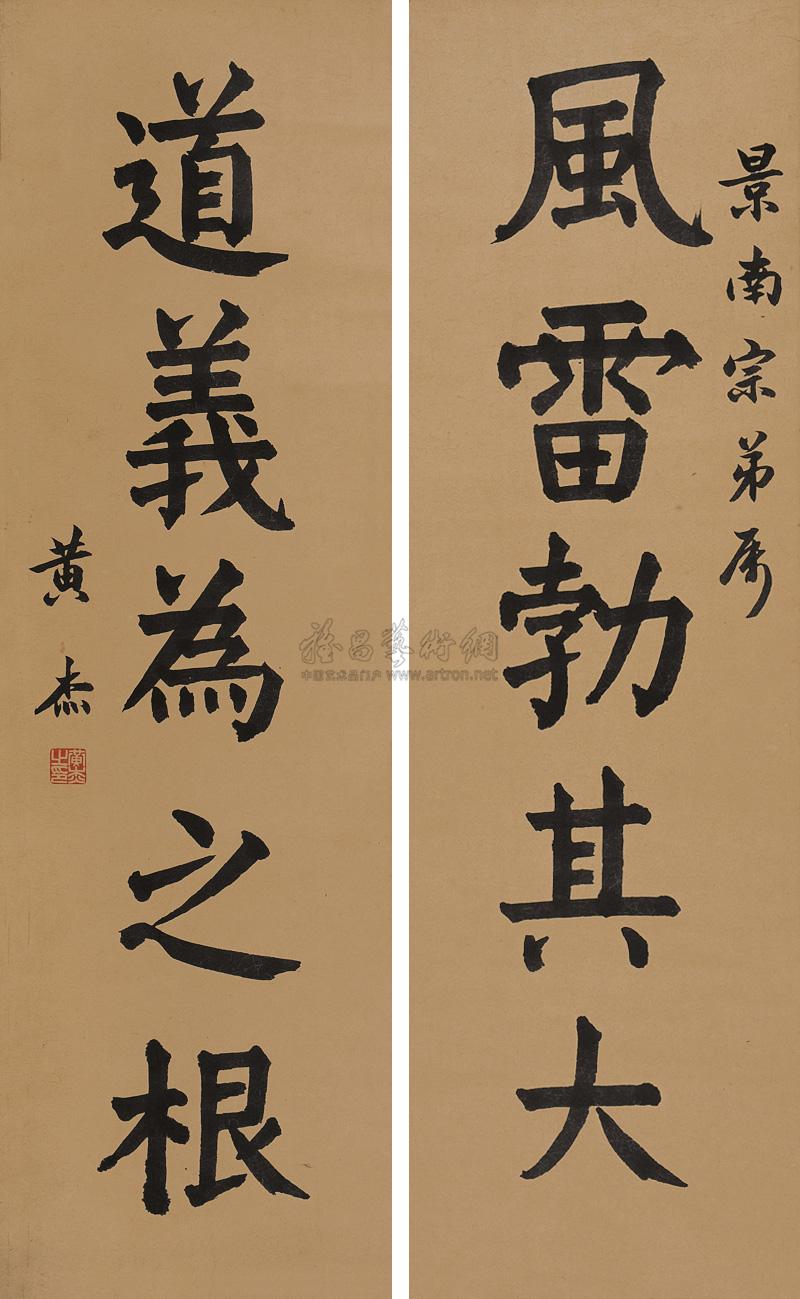 景南宗弟属
風雷勃其大
道義為之根
黄杰
黄杰之印
雅昌藝術網
中国艺术品门户 www.artron.net